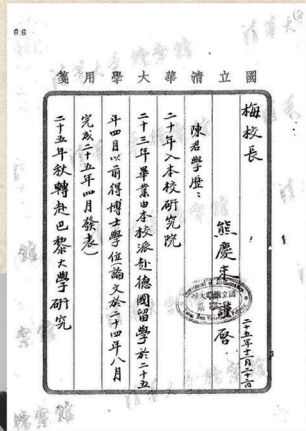 66
國立清華大學用箋
梅校長
陳君學歷：
熊慶來謹啓
二十五年十一月二十一日
二十年入本校研究院
二十三年畢業由本校派赴德國留學於二十五
年四月以前得博士學位(論文於二十四年八月
完成二十五年四月發表)
二十五年秋轉赴巴黎大學研究